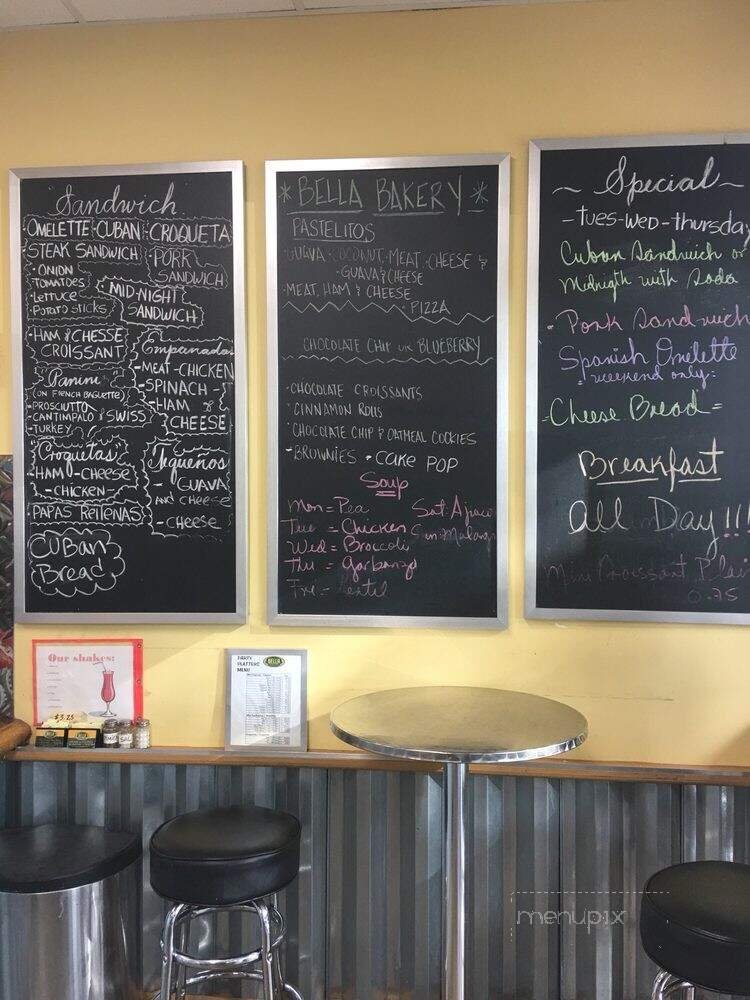 Sandwich
OMELETTE · CUBAN · CROQUETA
· STEAK SANDWICH
· PORK SANDWICH
· ONION
TOMATOES
· Lettuce
· POTATO STICKS
MID-NIGHT
SANDWICH
· HAM & CHESSE
CROISSANT
Empanadas
- MEAT - CHICKEN
- SPINACH -
- HAM &
CHEESE
Panini
(ON FRENCH BAGUETTE)
· PROSCIUTTO
· CANTIMPALO & SWISS
· TURKEY
Croquetas
- HAM - CHEESE
- CHICKEN -
Tequeños
- GUAVA
AND CHEESE
- CHEESE
· PAPAS RELLENAS
CUBAN
Bread
* BELLA BAKERY *
PASTELITOS
GUAVA · COCONUT, MEAT · CHEESE &
· GUAVA & CHEESE
· MEAT, HAM & CHEESE
PIZZA
CHOCOLATE CHIP or BLUEBERRY
· CHOCOLATE CROISSANTS
· CINNAMON ROLLS
· CHOCOLATE CHIP & OATMEAL COOKIES
· BROWNIES · CAKE POP
Soup
Mon = Pea Sat. Ajiaco
Tue = Chicken Sun Malanga
Wed = Broccoli
Thu = Garbanzo
Fri = Lentil
~ Special ~
- Tues - Wed - thursday
Cuban Sandwich or
Midnigth with Soda
- Pork Sandwich
Spanish Omelette
weekend only =
- Cheese Bread =
Breakfast
all Day!!!
Mini Croissant Plain
0.75
Our shakes:
$3.25
PARTY
PLATTERS
MENU
BELLA
menupix